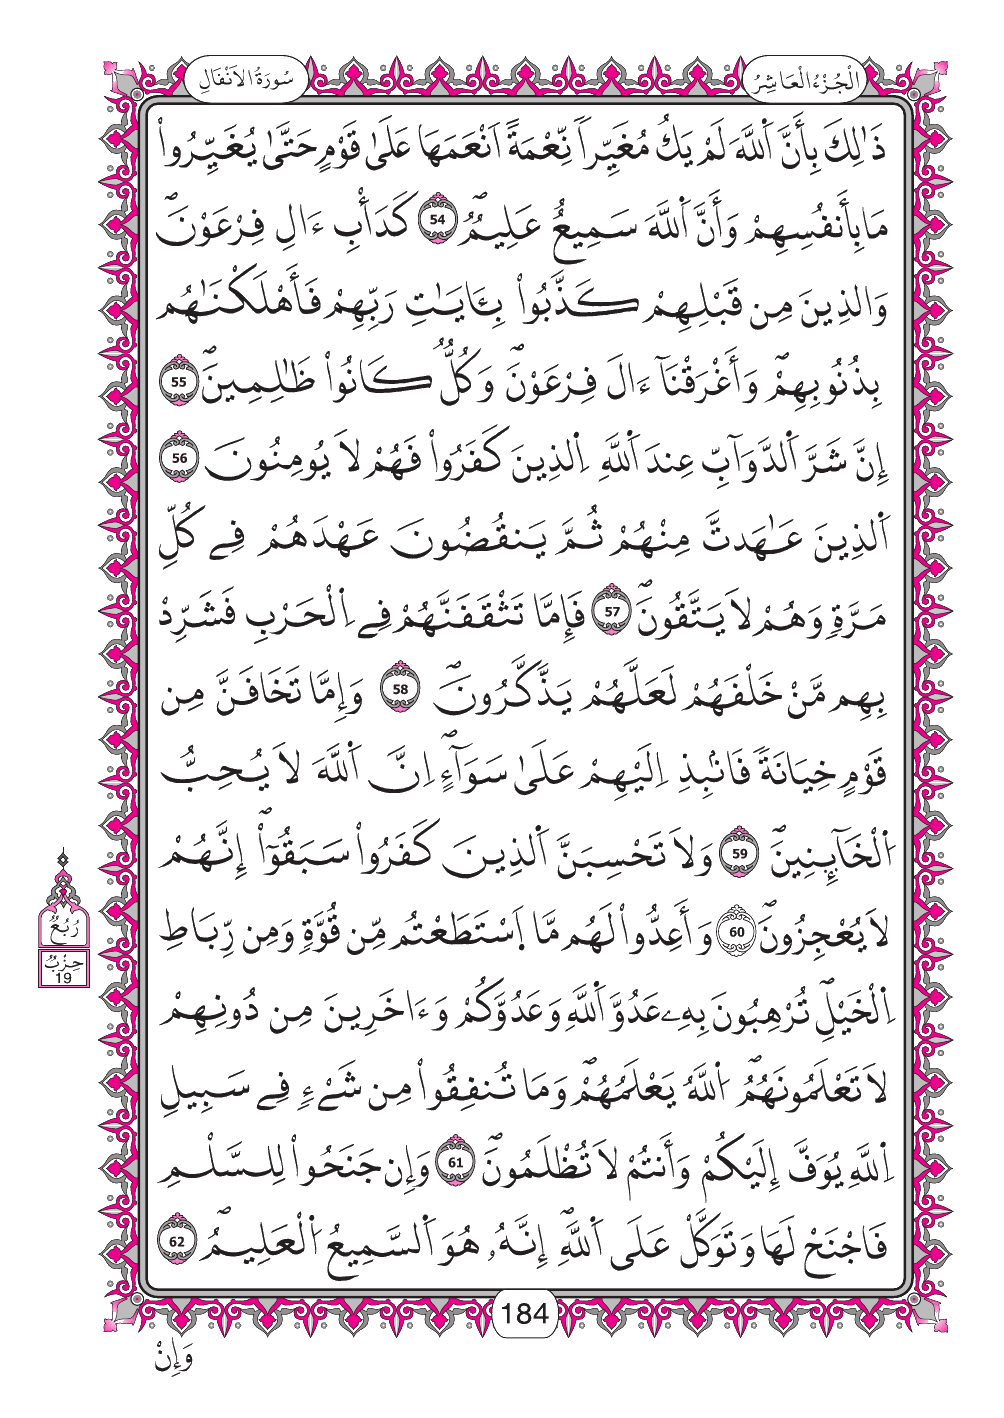 الْجُزْءُ الْعَاشِرُ
سُورَةُ الاَنْفَالِ
ذَٰلِكَ بِأَنَّ اَللَّهَ لَمْ يَكُ مُغَيِّراً نِّعْمَةً اَنْعَمَهَا عَلَىٰ قَوْمٍ حَتَّىٰ يُغَيِّرُواْ
مَا بِأَنفُسِهِمْ وَأَنَّ اَللَّهَ سَمِيعٌ عَلِيمٌۖ 54 كَدَأْبِ ءَالِ فِرْعَوْنَۖ
وَالذِينَ مِن قَبْلِهِمْ كَذَّبُواْ بِـَٔايَـٰتِ رَبِّهِمْ فَأَهْلَكْنَـٰهُم
بِذُنُوبِهِمْۖ وَأَغْرَقْنَآ ءَالَ فِرْعَوْنَۖ وَكُلٌّ كَانُواْ ظَـٰلِمِينَۖ 55
إِنَّ شَرَّ اَلدَّوَآبِّ عِندَ اَللَّهِ اِلذِينَ كَفَرُواْ فَهُمْ لاَ يُومِنُونَ 56
اَلذِينَ عَـٰهَدتَّ مِنْهُمْ ثُمَّ يَنقُضُونَ عَهْدَهُمْ فِے كُلِّ
مَرَّةٍ وَهُمْ لاَ يَتَّقُونَۖ 57 فَإِمَّا تَثْقَفَنَّهُمْ فِے اِلْحَرْبِ فَشَرِّدْ
بِهِم مَّنْ خَلْفَهُمْ لَعَلَّهُمْ يَذَّكَّرُونَۖ 58 وَإِمَّا تَخَافَنَّ مِن
قَوْمٍ خِيَانَةً فَانۢبِذِ اِلَيْهِمْ عَلَىٰ سَوَآءٍۖ اِنَّ اَللَّهَ لاَ يُحِبُّ
اُلْخَآئِنِينَۖ 59 وَلاَ تَحْسِبَنَّ اَلذِينَ كَفَرُواْ سَبَقُوٓاْۖ إِنَّهُمْ
لاَ يُعْجِزُونَۖ 60 وَأَعِدُّواْ لَهُم مَّا اَسْتَطَعْتُم مِّن قُوَّةٍ وَمِن رِّبَاطِ
اِلْخَيْلِۖ تُرْهِبُونَ بِهِۦ عَدُوَّ اَللَّهِ وَعَدُوَّكُمْ وَءَاخَرِينَ مِن دُونِهِمْ
لاَ تَعْلَمُونَهُمُۖ اُللَّهُ يَعْلَمُهُمْۖ وَمَا تُنفِقُواْ مِن شَےْءٍ فِے سَبِيلِ
اِللَّهِ يُوَفَّ إِلَيْكُمْ وَأَنتُمْ لاَ تُظْلَمُونَۖ 61 وَإِن جَنَحُواْ لِلسَّلْمِ
فَاجْنَحْ لَهَا وَتَوَكَّلْ عَلَى اَللَّهِۖ إِنَّهُۥ هُوَ اَلسَّمِيعُ اُلْعَلِيمُۖ 62
رُبُعُ
حِزْبٌ
19
184
وَإِنْ